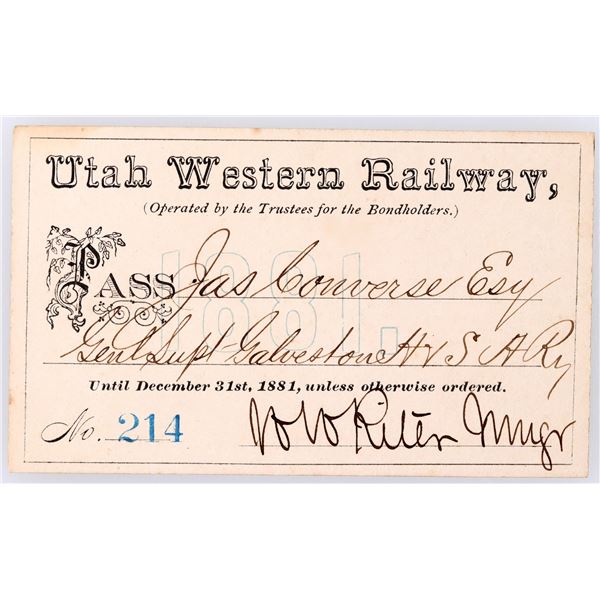 Utah Western Railway,
(Operated by the Trustees for the Bondholders.)
1881.
PASS Jas Converse Esq
Genl Supt Galveston H & S A Ry
Until December 31st, 1881, unless otherwise ordered.
No. 214 W W Riter Mngr